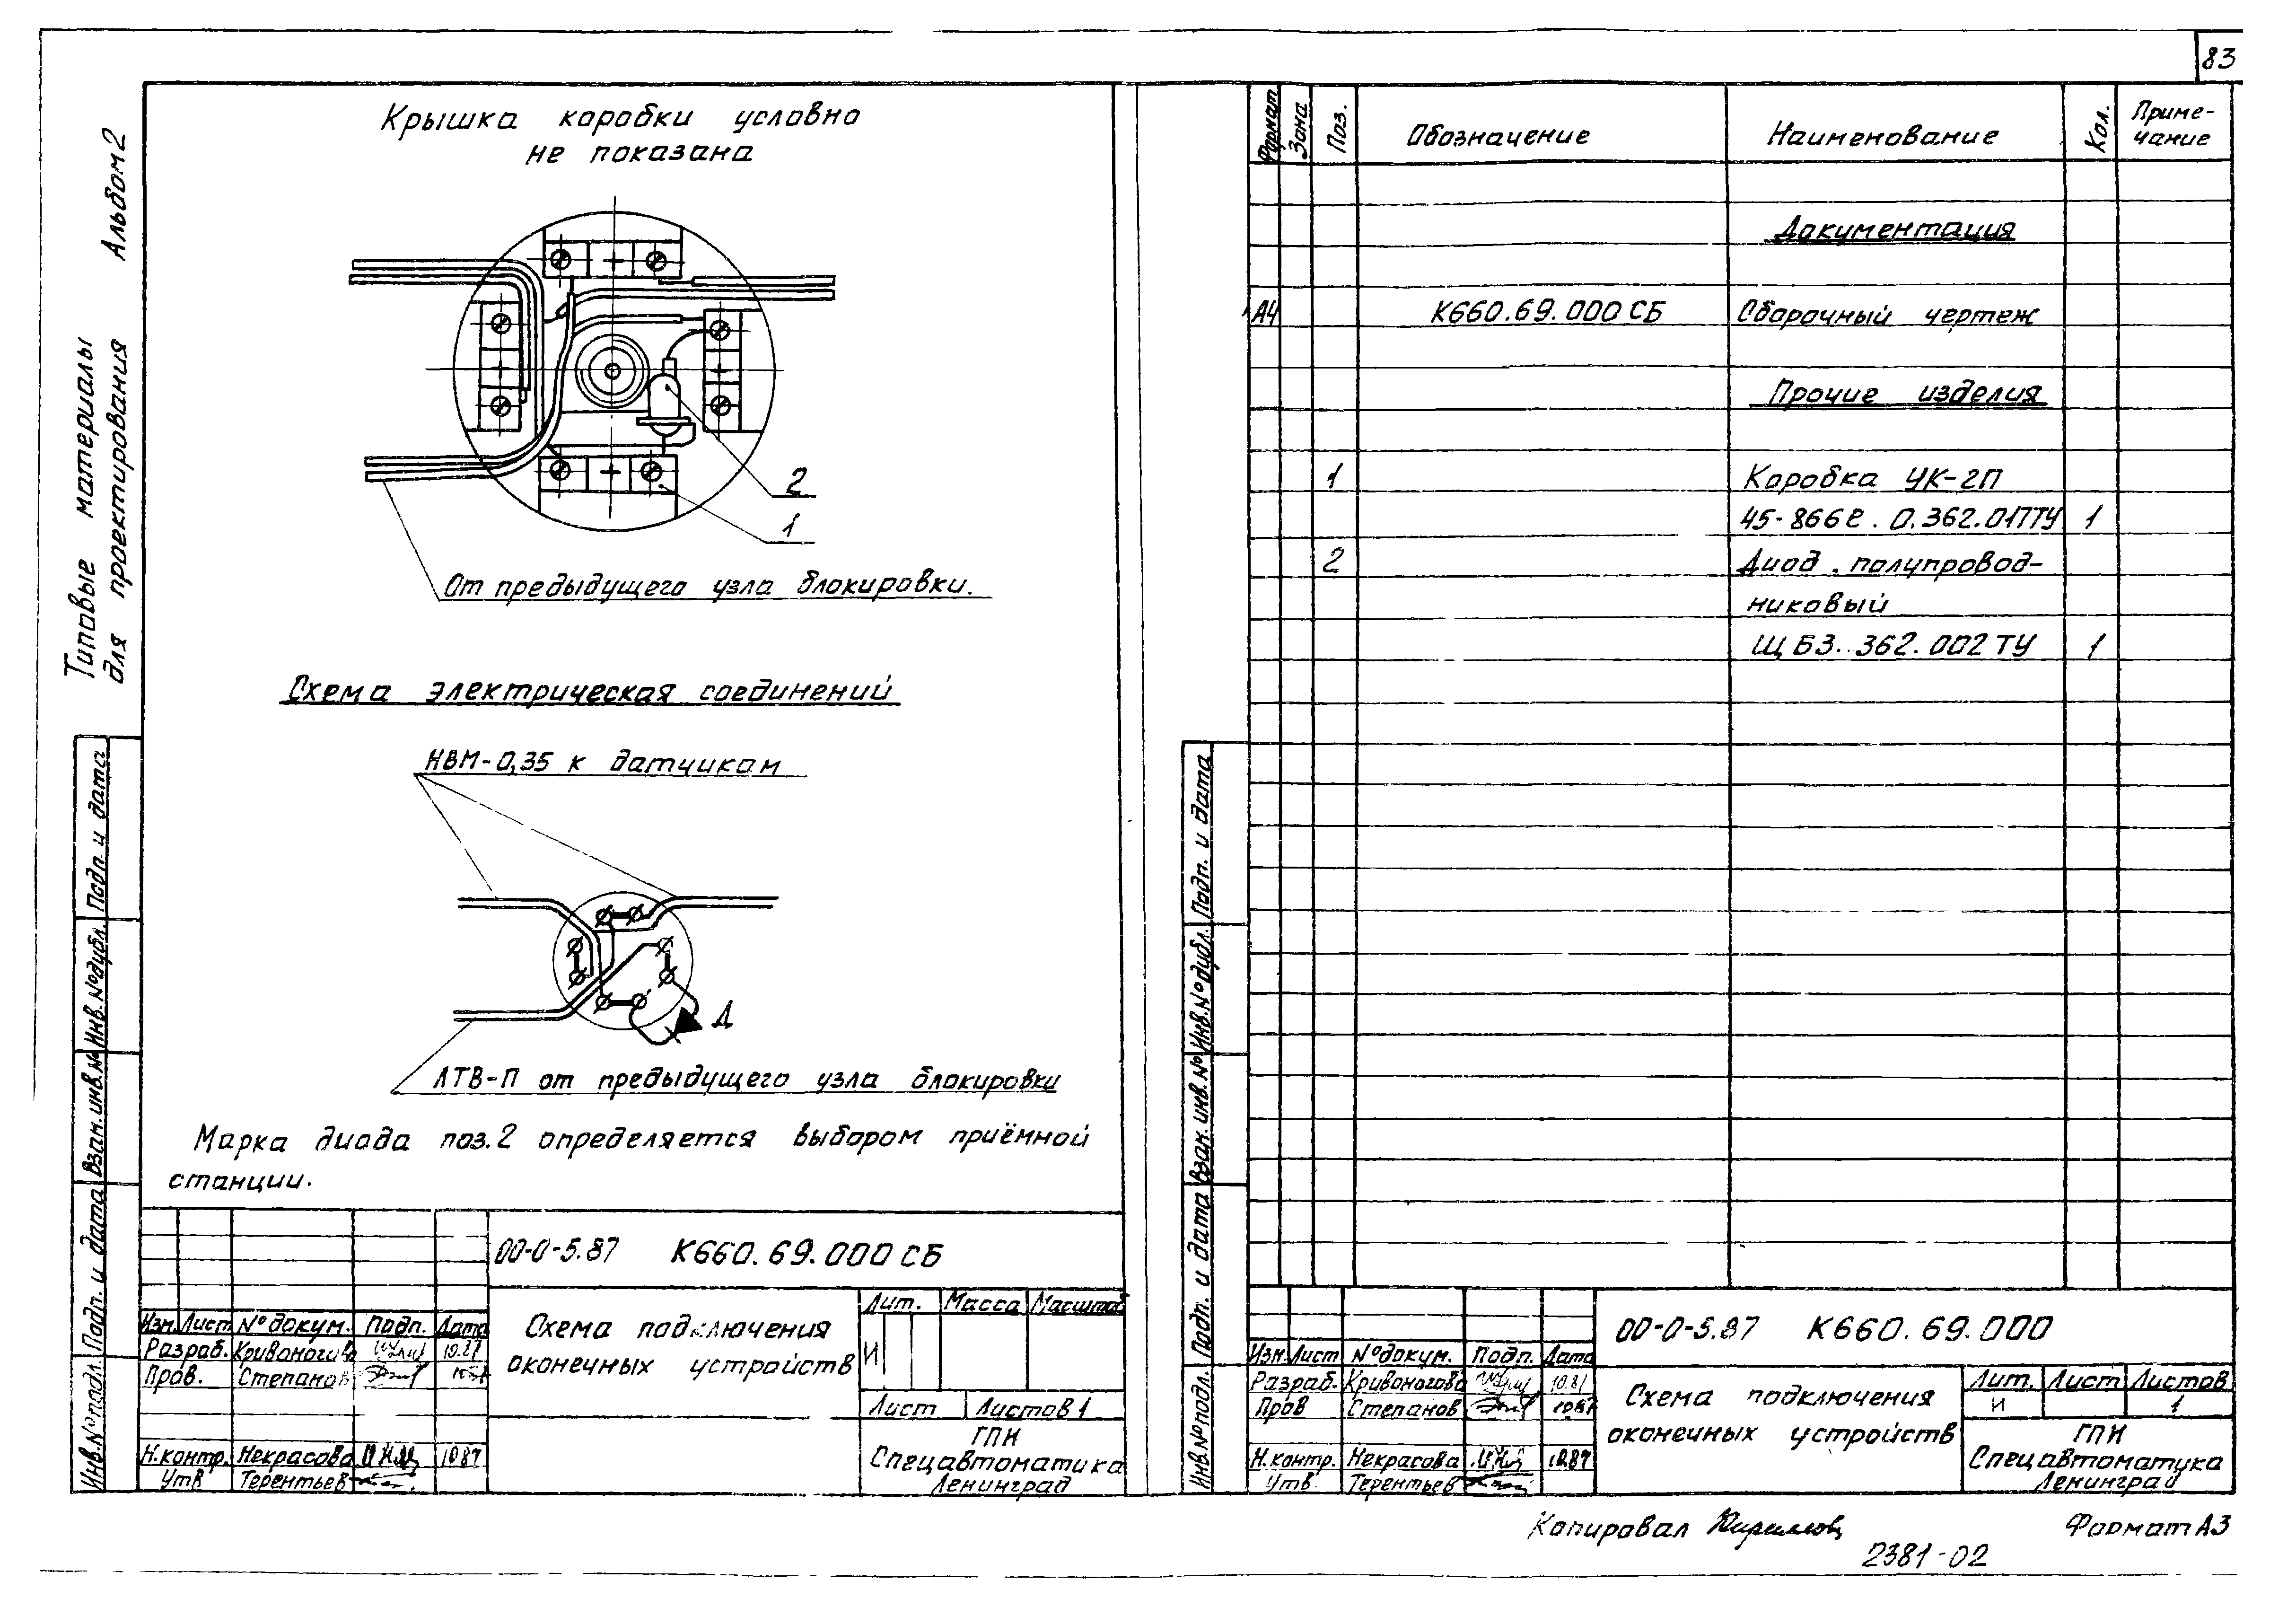 83
Альбом 2
Типовые материалы
для проектирования
Крышка коробки условно
не показана
2
1
От предыдущего узла блокировки.
Схема электрическая соединений
НВМ-0,35 к датчикам
Д
АТВ-П от предыдущего узла блокировки
Марка диода поз. 2 определяется выбором приёмной
станции.
Инв.№ подл. Подп. и дата Взам.инв.№ Инв.№ дубл. Подп и дата
00-0-5.87 К660.69.000 СБ
Изм. Лист № докум. Подп. Дата
Разраб. Кривоногова 10.87
Пров. Степанов
Н.контр. Некрасова 10.87
Утв Терентьев
Схема подключения
оконечных устройств
Лит. Масса Масштаб
И
Лист Листов 1
ГПИ
Спецавтоматика
Ленинград
Формат Зона Поз. Обозначение Наименование Кол. Приме-
чание
Документация
А4 К660.69.000 СБ Сборочный чертеж
Прочие изделия
1 Коробка УК-2П
45-866 2. 0.362.017ТУ 1
2 Диод полупровод-
никовый
ЩБ3.362.002 ТУ 1
Инв.№ подл. Подп. и дата Взам.инв.№ Инв.№ дубл. Подп. и дата
00-0-5.87 К660.69.000
Изм. Лист № докум. Подп. Дата
Разраб. Кривоногова 10.87
Пров Степанов 10.87
Н.контр. Некрасова 10.87
Утв. Терентьев
Схема подключения
оконечных устройств
Лит. Лист Листов
И 1
ГПИ
Спецавтоматика
Ленинград
Копировал Формат А3
2381-02